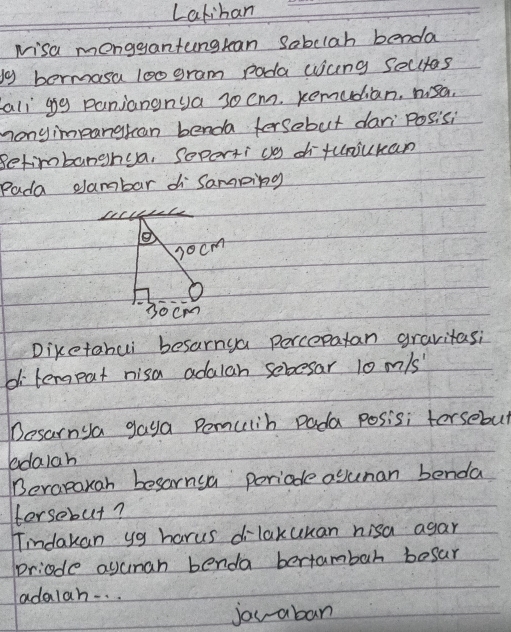 Latihan
Nisa menggantungkan sebuah benda
yg bermasa 100 gram pada ujung seutas
tali yg panjangnya 30 cm. kemudian, nisa.
menyimpangkan benda tersebut dari posisi
setimbangnya, seperti yg ditunjukan
pada gambar di samping
θ
30 cm
30 cm
Diketahui besarnya percepatan gravitasi
di tempat nisa adalah sebesar 10 m/s'
Besarnya gaya pemulih pada posisi tersebut
adalah
Berapakah besarnya periode ayunan benda
tersebut?
Tindakan yg harus dilakukan nisa agar
priode ayunan benda bertambah besar
adalah...
jawaban